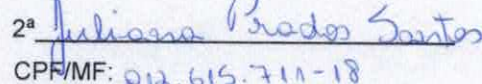 2ª Juliana Prados Santos
CPF/MF: 012.615.711-18